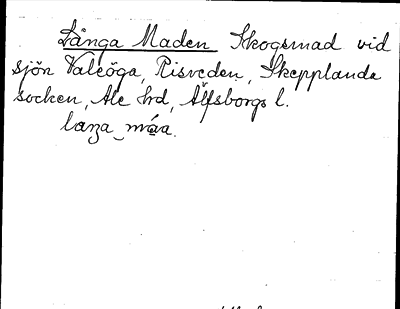 Långa Maden Skogsmad vid
sjön Valeöga, Risveden, Skepplanda
socken, Ale hd, Älfsborgs l.